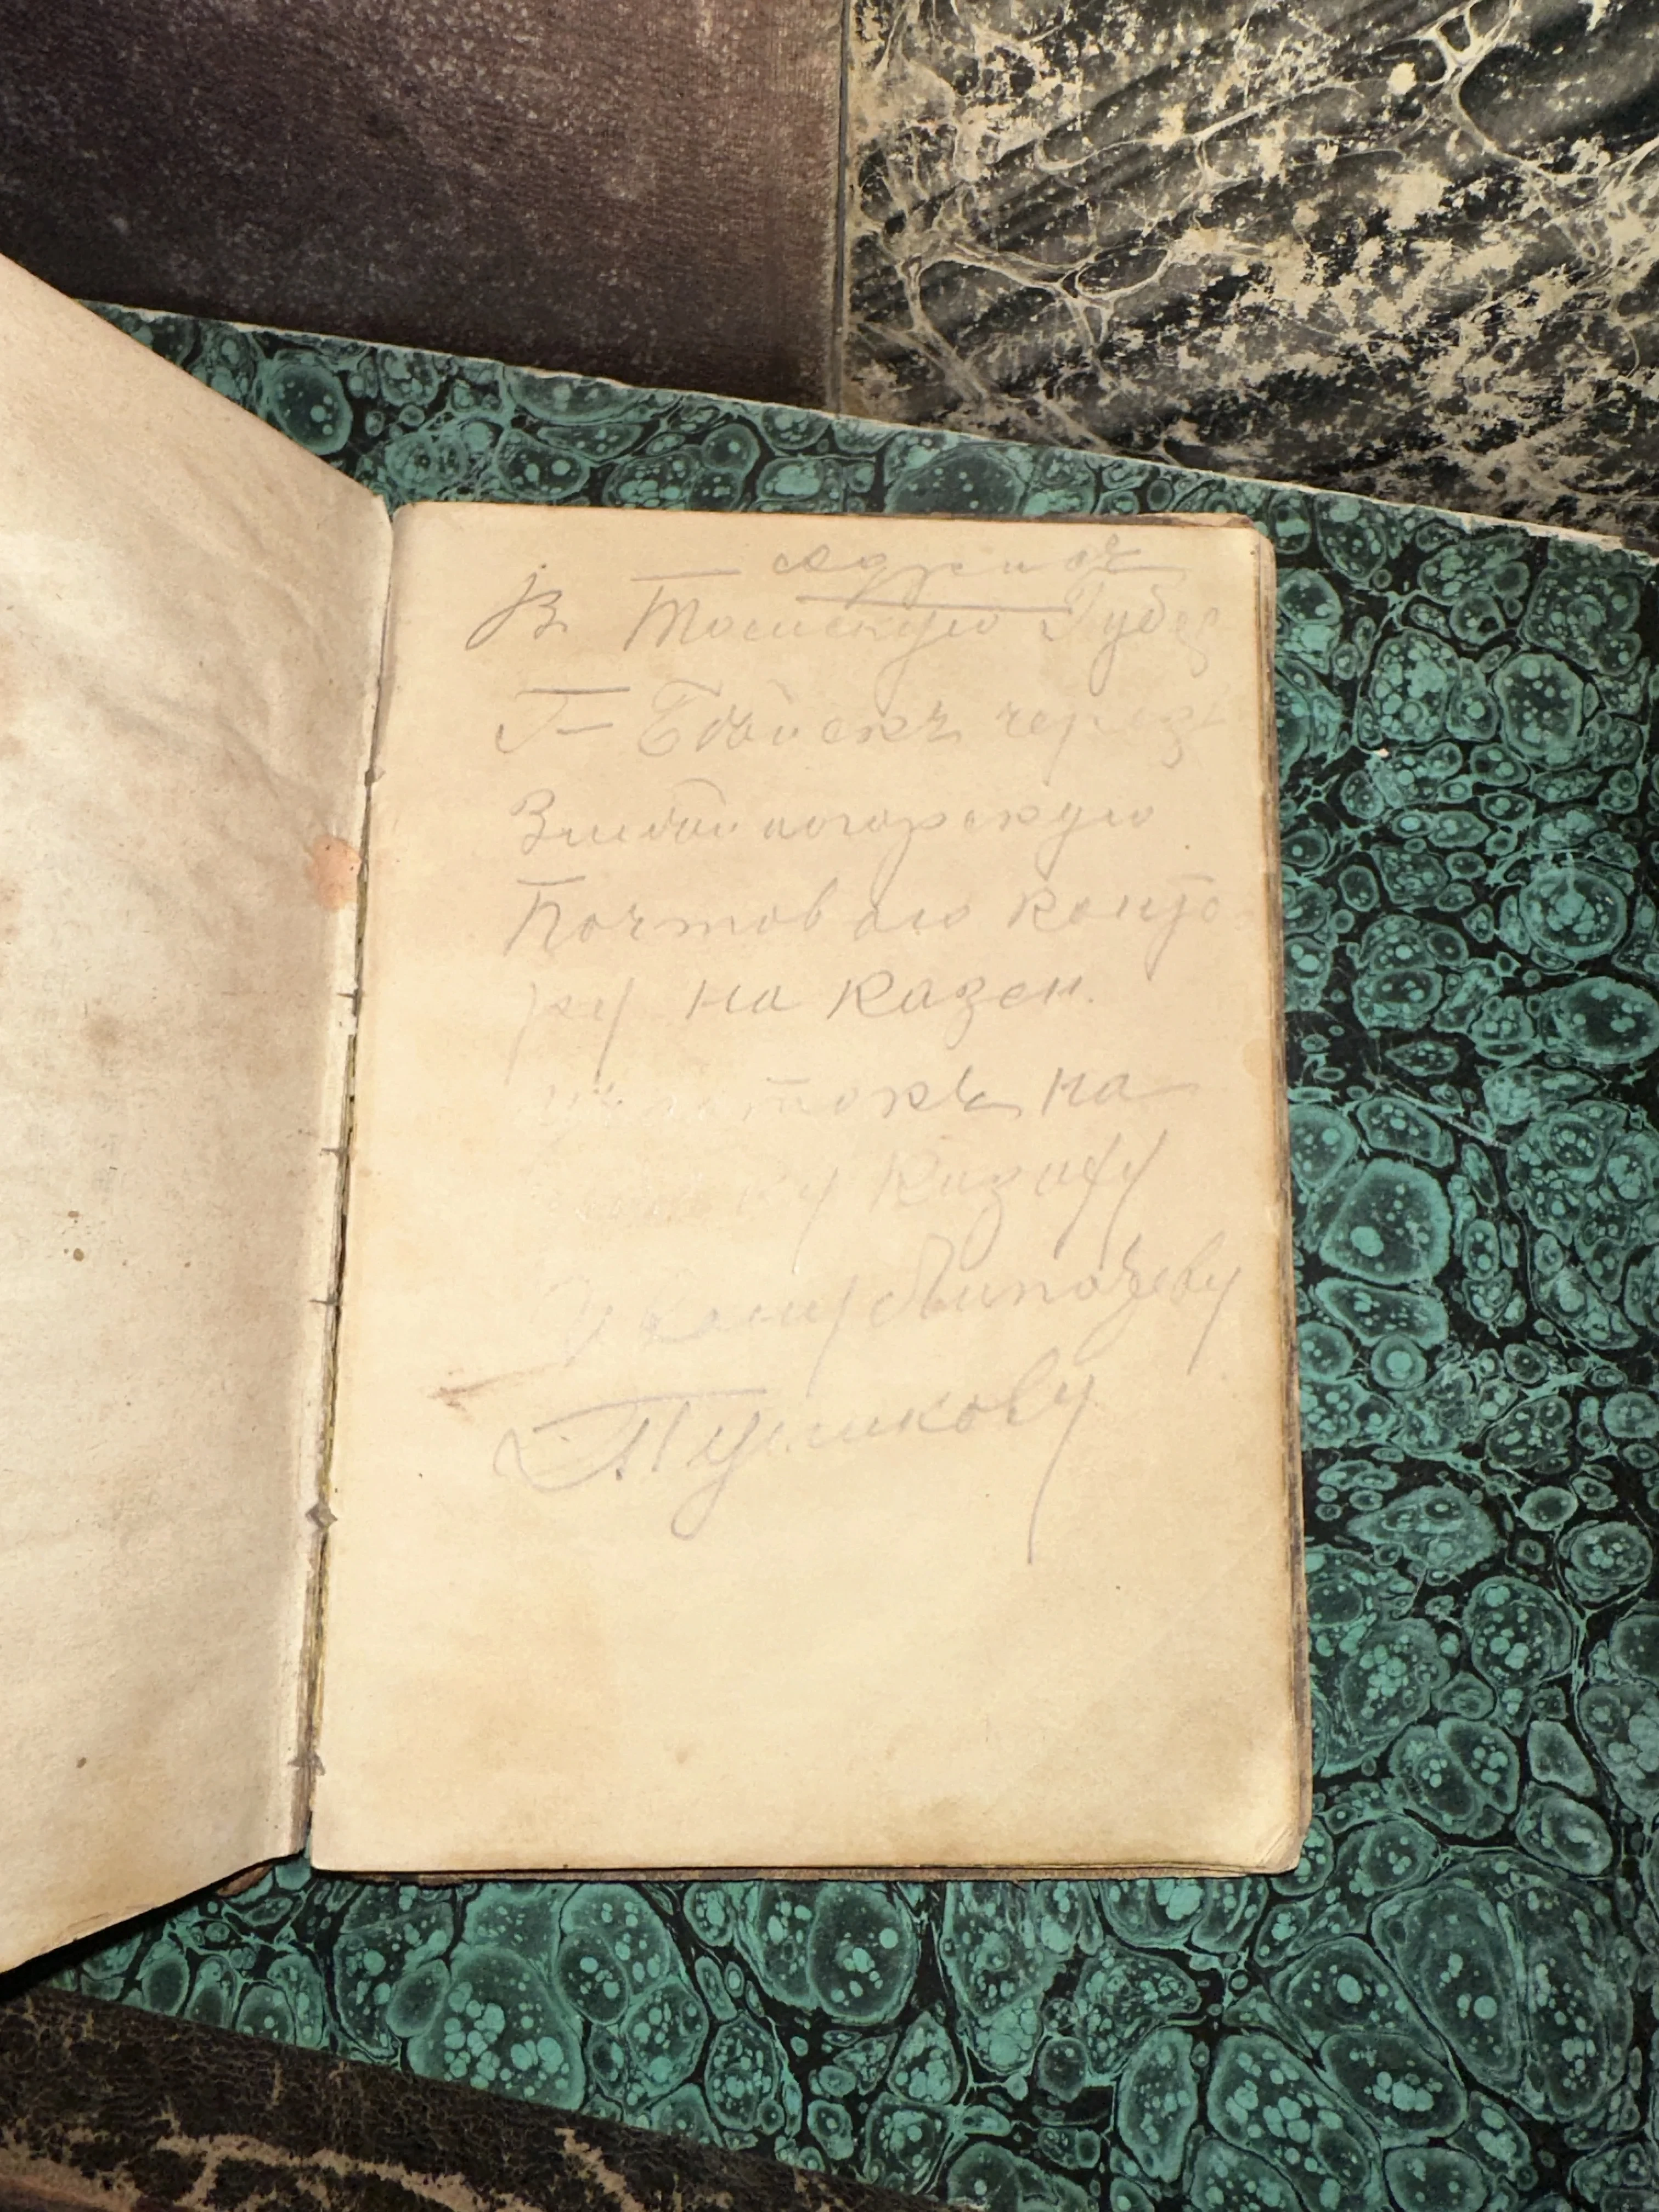 адрисъ
В Томскую Губер
Г– Бийскъ через
Змеиногорскую
Почтовою конто
ру на казен.
участокъ на
ку Казаку
Пушкову